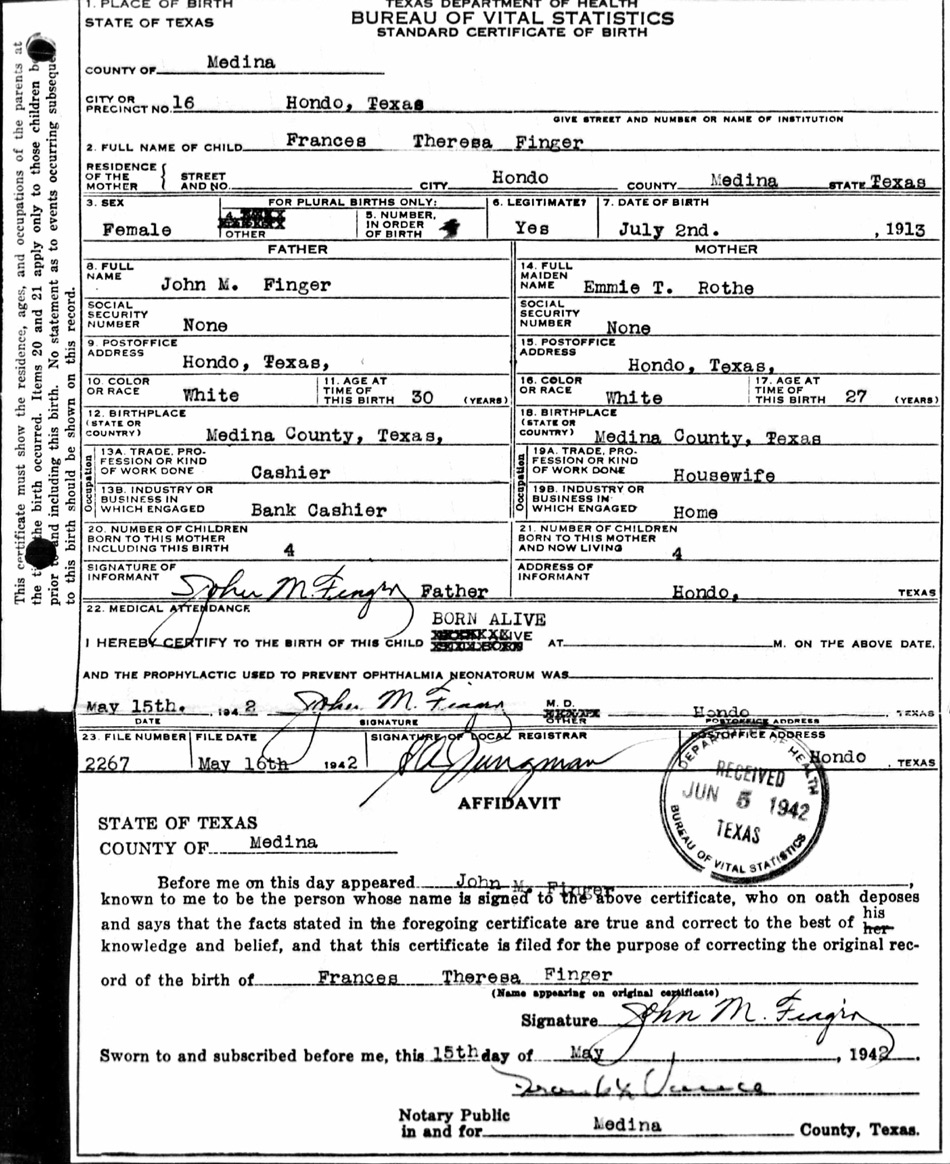 1. PLACE OF BIRTH
TEXAS DEPARTMENT OF HEALTH
STATE OF TEXAS
BUREAU OF VITAL STATISTICS
STANDARD CERTIFICATE OF BIRTH
COUNTY OF Medina
CITY OR PRECINCT NO. 16 Hondo, Texas
GIVE STREET AND NUMBER OR NAME OF INSTITUTION
2. FULL NAME OF CHILD Frances Theresa Finger
RESIDENCE OF THE MOTHER { STREET AND NO. CITY Hondo COUNTY Medina STATE Texas
3. SEX Female
FOR PLURAL BIRTHS ONLY:
OTHER
5. NUMBER, IN ORDER OF BIRTH
6. LEGITIMATE? Yes
7. DATE OF BIRTH July 2nd. , 1913
FATHER
8. FULL NAME John M. Finger
SOCIAL SECURITY NUMBER None
9. POSTOFFICE ADDRESS Hondo, Texas,
10. COLOR OR RACE White
11. AGE AT TIME OF THIS BIRTH 30 (YEARS)
12. BIRTHPLACE (STATE OR COUNTRY) Medina County, Texas,
Occupation
13A. TRADE, PROFESSION OR KIND OF WORK DONE Cashier
13B. INDUSTRY OR BUSINESS IN WHICH ENGAGED Bank Cashier
20. NUMBER OF CHILDREN BORN TO THIS MOTHER INCLUDING THIS BIRTH 4
MOTHER
14. FULL MAIDEN NAME Emmie T. Rothe
SOCIAL SECURITY NUMBER None
15. POSTOFFICE ADDRESS Hondo, Texas,
16. COLOR OR RACE White
17. AGE AT TIME OF THIS BIRTH 27 (YEARS)
18. BIRTHPLACE (STATE OR COUNTRY) Medina County, Texas
Occupation
19A. TRADE, PROFESSION OR KIND OF WORK DONE Housewife
19B. INDUSTRY OR BUSINESS IN WHICH ENGAGED Home
21. NUMBER OF CHILDREN BORN TO THIS MOTHER AND NOW LIVING 4
SIGNATURE OF INFORMANT John M. Finger Father
ADDRESS OF INFORMANT Hondo, TEXAS
22. MEDICAL ATTENDANCE
BORN ALIVE
I HEREBY CERTIFY TO THE BIRTH OF THIS CHILD AT M. ON THE ABOVE DATE,
AND THE PROPHYLACTIC USED TO PREVENT OPHTHALMIA NEONATORUM WAS
May 15th. , 1942 John M. Finger M. D. OTHER Hondo TEXAS
DATE SIGNATURE POSTOFFICE ADDRESS
23. FILE NUMBER FILE DATE SIGNATURE OF LOCAL REGISTRAR POSTOFFICE ADDRESS
2267 May 16th 1942 Jungman Hondo , TEXAS
DEPARTMENT OF HEALTH
RECEIVED
JUN 5 1942
TEXAS
BUREAU OF VITAL STATISTICS
AFFIDAVIT
STATE OF TEXAS
COUNTY OF Medina
Before me on this day appeared John M. Finger ,
known to me to be the person whose name is signed to the above certificate, who on oath deposes
and says that the facts stated in the foregoing certificate are true and correct to the best of his her
knowledge and belief, and that this certificate is filed for the purpose of correcting the original rec-
ord of the birth of Frances Theresa Finger
(Name appearing on original certificate)
Signature John M. Finger
Sworn to and subscribed before me, this 15th day of May , 1942.
Notary Public
in and for Medina County, Texas.
This certificate must show the residence, ages, and occupations of the parents at
the birth occurred. Items 20 and 21 apply only to those children
and including this birth. No statement as to events occurring
to this birth should be shown on this record.